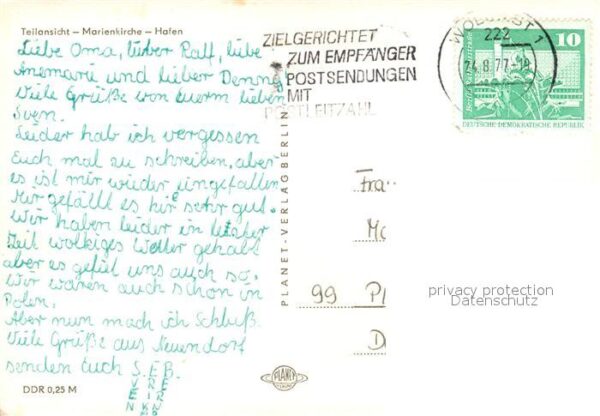 Teilansicht – Marienkirche – Hafen
Liebe Oma, lieber Ralf, liebe
Anemarie und lieber Denny
Viele Grüße von Euerm lieben
Sven.
Leider hab ich vergessen
Euch mal zu schreiben, aber
es ist mir wieder eingefallen
Mir gefällt es hir sehr gut.
Wir haben leider in letzter
Zeit wolkiges Wetter gehabt
aber es gefiel uns auch so.
Wir waren auch schon in
Polen.
Aber nun mach ich Schluß.
Viele Grüße aus Neuendorf
senden Euch S. E B.
DDR 0,25 M
PLANET-VERLAG BERLIN
PLANET
ZIELGERICHTET
ZUM EMPFÄNGER
POSTSENDUNGEN
MIT
POSTLEITZAHL
WOLGAST 1
222
24.8.77-18
10
DEUTSCHE DEMOKRATISCHE REPUBLIK
Fra
Mo
99 Pl
D
privacy protection
Datenschutz